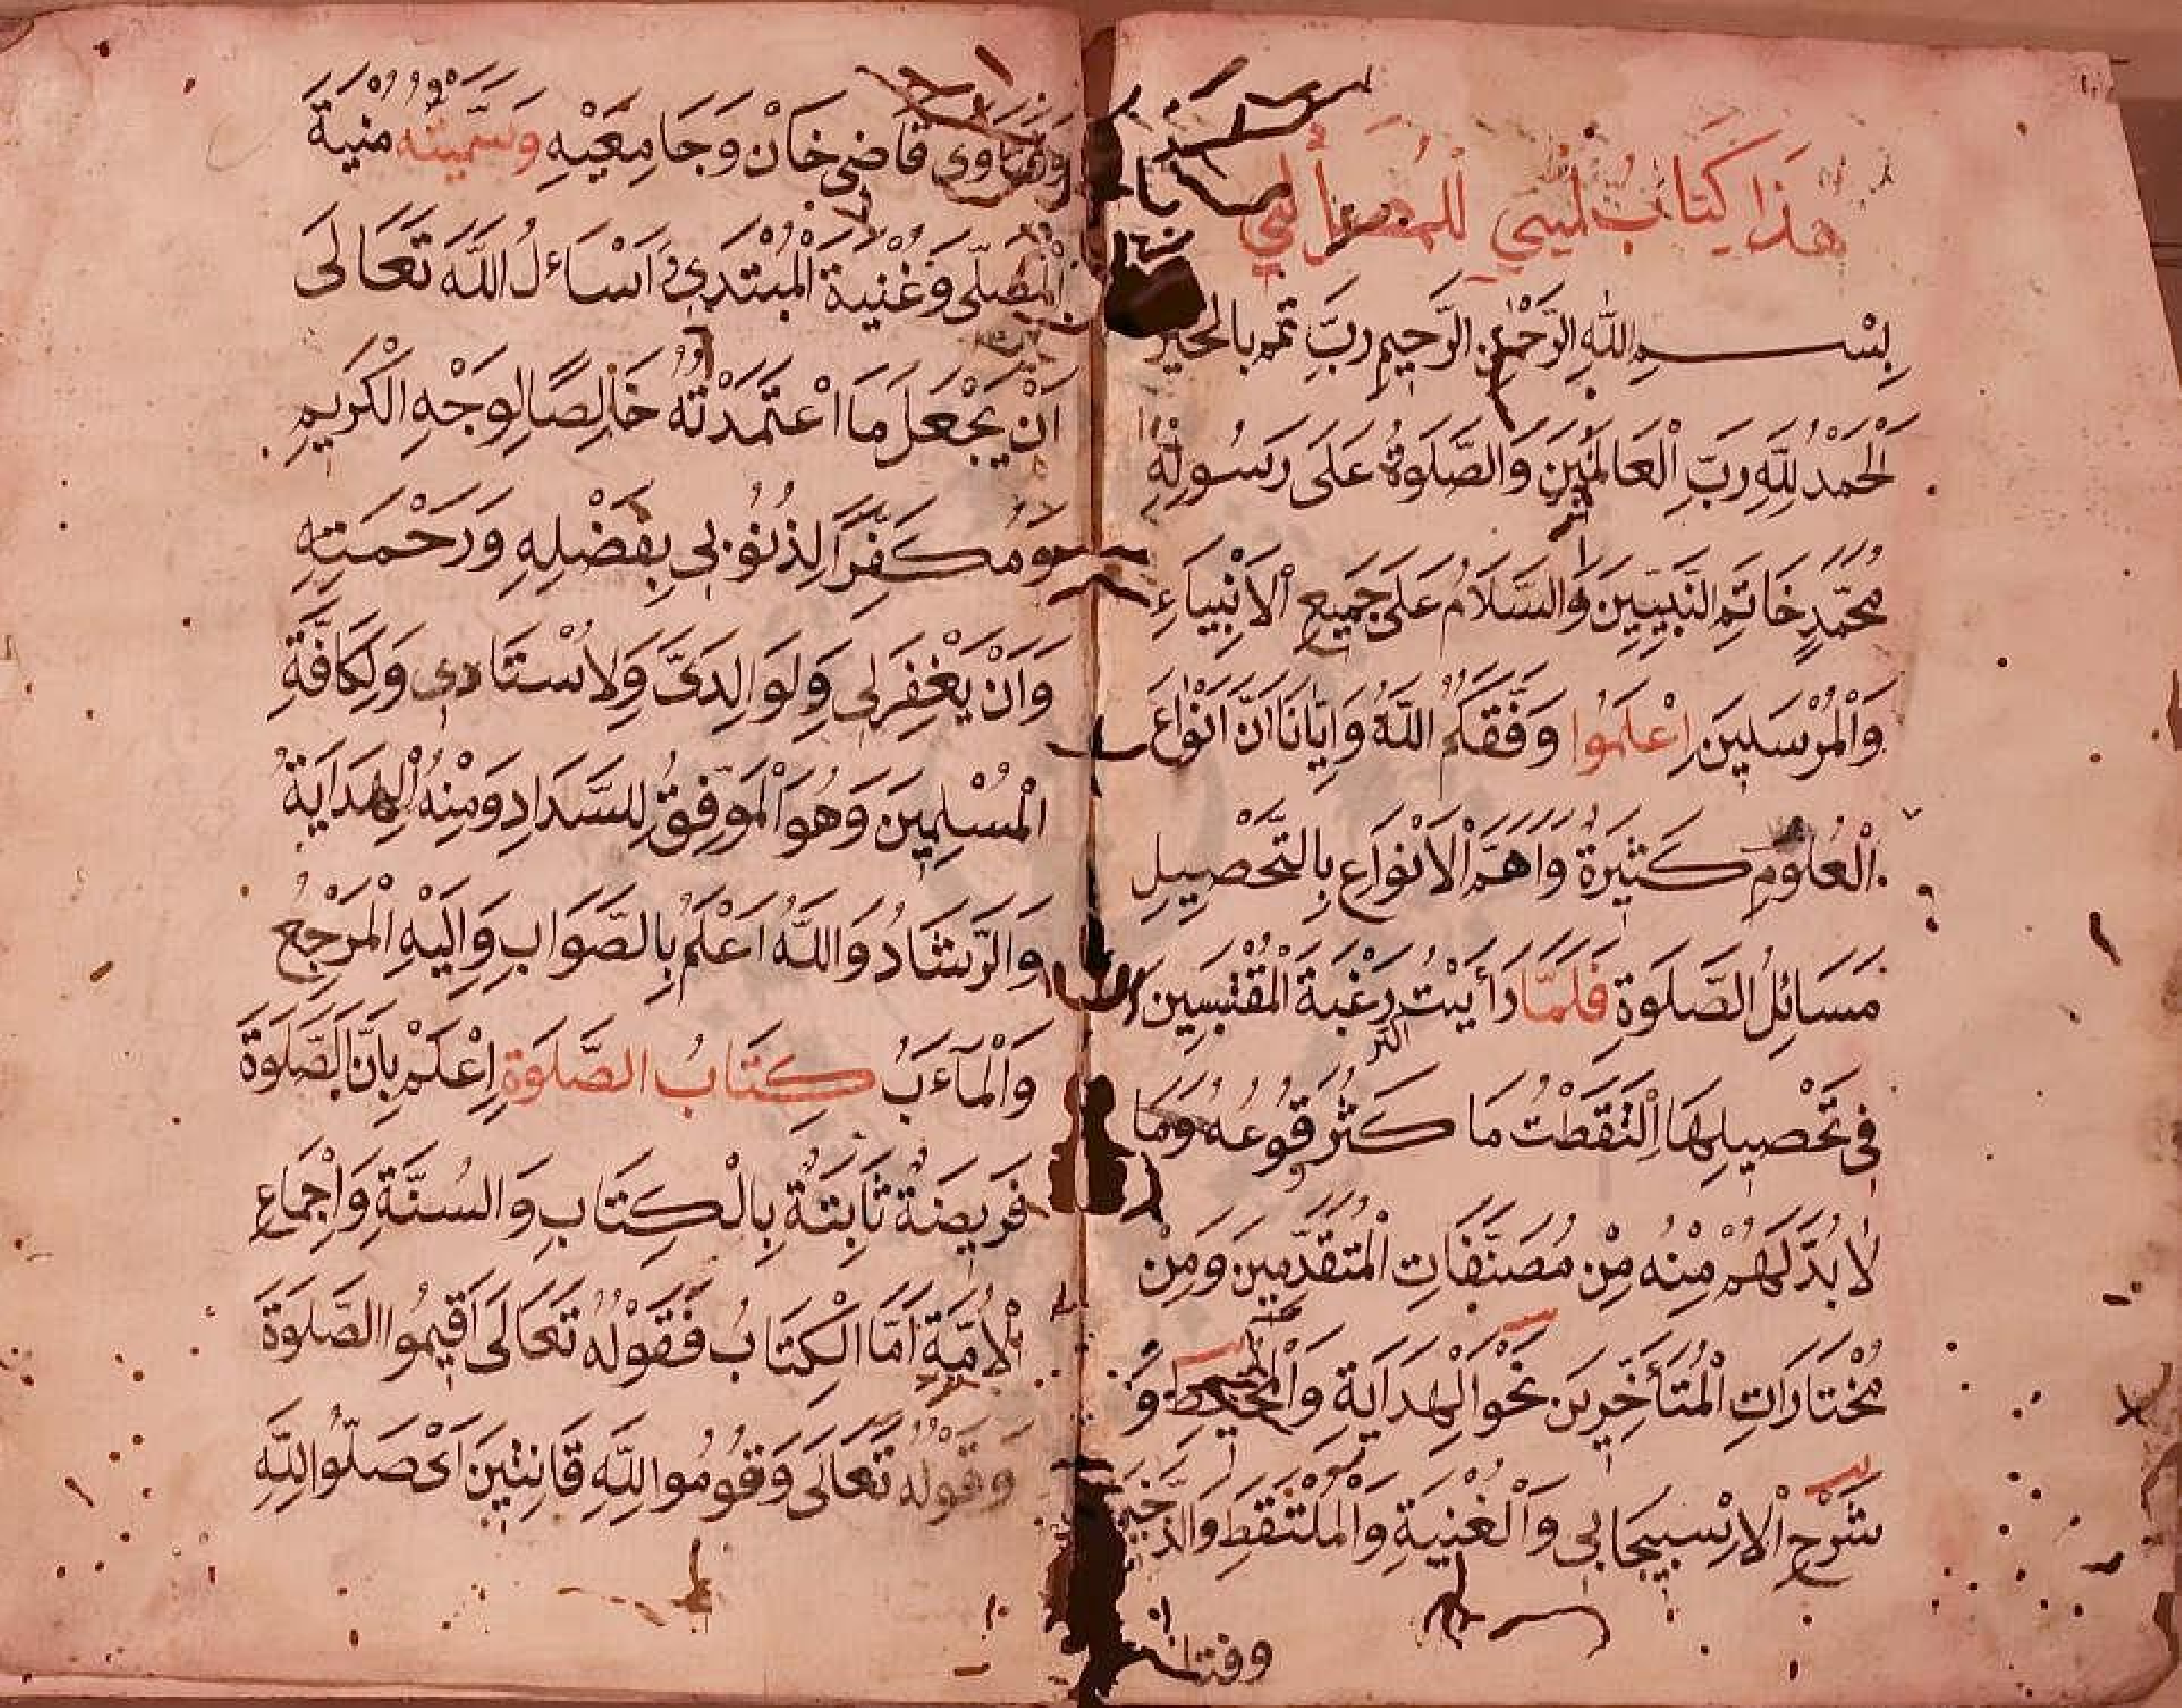 هٰذَا كِتَابُ
بِسْمِ اللّٰهِ الرَّحْمٰنِ الرَّحِيمِ رَبِّ تَمِّم بِالْخَيْرِ
اَلْحَمْدُ لِلّٰهِ رَبِّ الْعَالَمِينَ وَالصَّلٰوةُ عَلَى رَسُولِهِ
مُحَمَّدٍ خَاتِمِ النَّبِيِّينَ وَالسَّلَامُ عَلَى جَمِيعِ الْاَنْبِيَاءِ
وَالْمُرْسَلِينَ اِعْلَمُوا وَفَّقَكُمُ اللّٰهُ وَاِيَّانَا اَنَّ اَنْوَاعَ
الْعُلُومِ كَثِيرَةٌ وَاَهَمَّ الْاَنْوَاعِ بِالتَّحْصِيلِ
مَسَائِلُ الصَّلٰوةِ فَلَمَّا رَأَيْتُ رَغْبَةَ الْمُقْتَبِسِينَ
فِى تَحْصِيلِهَا اِلْتَقَطْتُ مَا كَثُرَ وُقُوعُهُ وَمَا
لَا بُدَّ لَهُمْ مِنْهُ مِنْ مُصَنَّفَاتِ الْمُتَقَدِّمِينَ وَمِنْ
مُخْتَارَاتِ الْمُتَأَخِّرِينَ نَحْوَ الْهِدَايَةِ وَالْمُحِيطِ وَ
شَرْحِ الْاِسْبِيجَابِى وَالْغُنْيَةِ وَالْمُلْتَقَطِ وَالذَّخِيرَةِ
وفتا
وَفَتَاوٰى قَاضِى خَانْ وَجَامِعَيْهِ وَسَمَّيْتُهُ مُنْيَةَ
الْمُصَلِّى وَغُنْيَةَ الْمُبْتَدِى اَسْاَءلُ اللّٰهَ تَعَالَى
اَنْ يَجْعَلَ مَا اعْتَمَدْتُهُ خَالِصًا لِوَجْهِهِ الْكَرِيمِ
وَمُكَفِّرًا لِذُنُوبِى بِفَضْلِهِ وَرَحْمَتِهِ
وَاَنْ يَغْفِرَ لِى وَلِوَالِدَىَّ وَلِاُسْتَادِى وَلِكَافَّةِ
الْمُسْلِمِينَ وَهُوَ الْمُوَفِّقُ لِلسَّدَادِ وَمِنْهُ الْهِدَايَةُ
وَالرَّشَادُ وَاللّٰهُ اَعْلَمُ بِالصَّوَابِ وَاِلَيْهِ الْمَرْجِعُ
وَالْمَآءَبُ كِتَابُ الصَّلٰوةِ اِعْلَمْ بِاَنَّ الصَّلٰوةَ
فَرِيضَةٌ ثَابِتَةٌ بِالْكِتَابِ وَالسُّنَّةِ وَاِجْمَاعِ
الْاُمَّةِ اَمَّا الْكِتَابُ فَقَوْلُهُ تَعَالَى اَقِيمُوا الصَّلٰوةَ
وَقَوْلُهُ تَعَالَى وَقُومُوا لِلّٰهِ قَانِتِينَ اَىْ صَلُّوا لِلّٰهِ